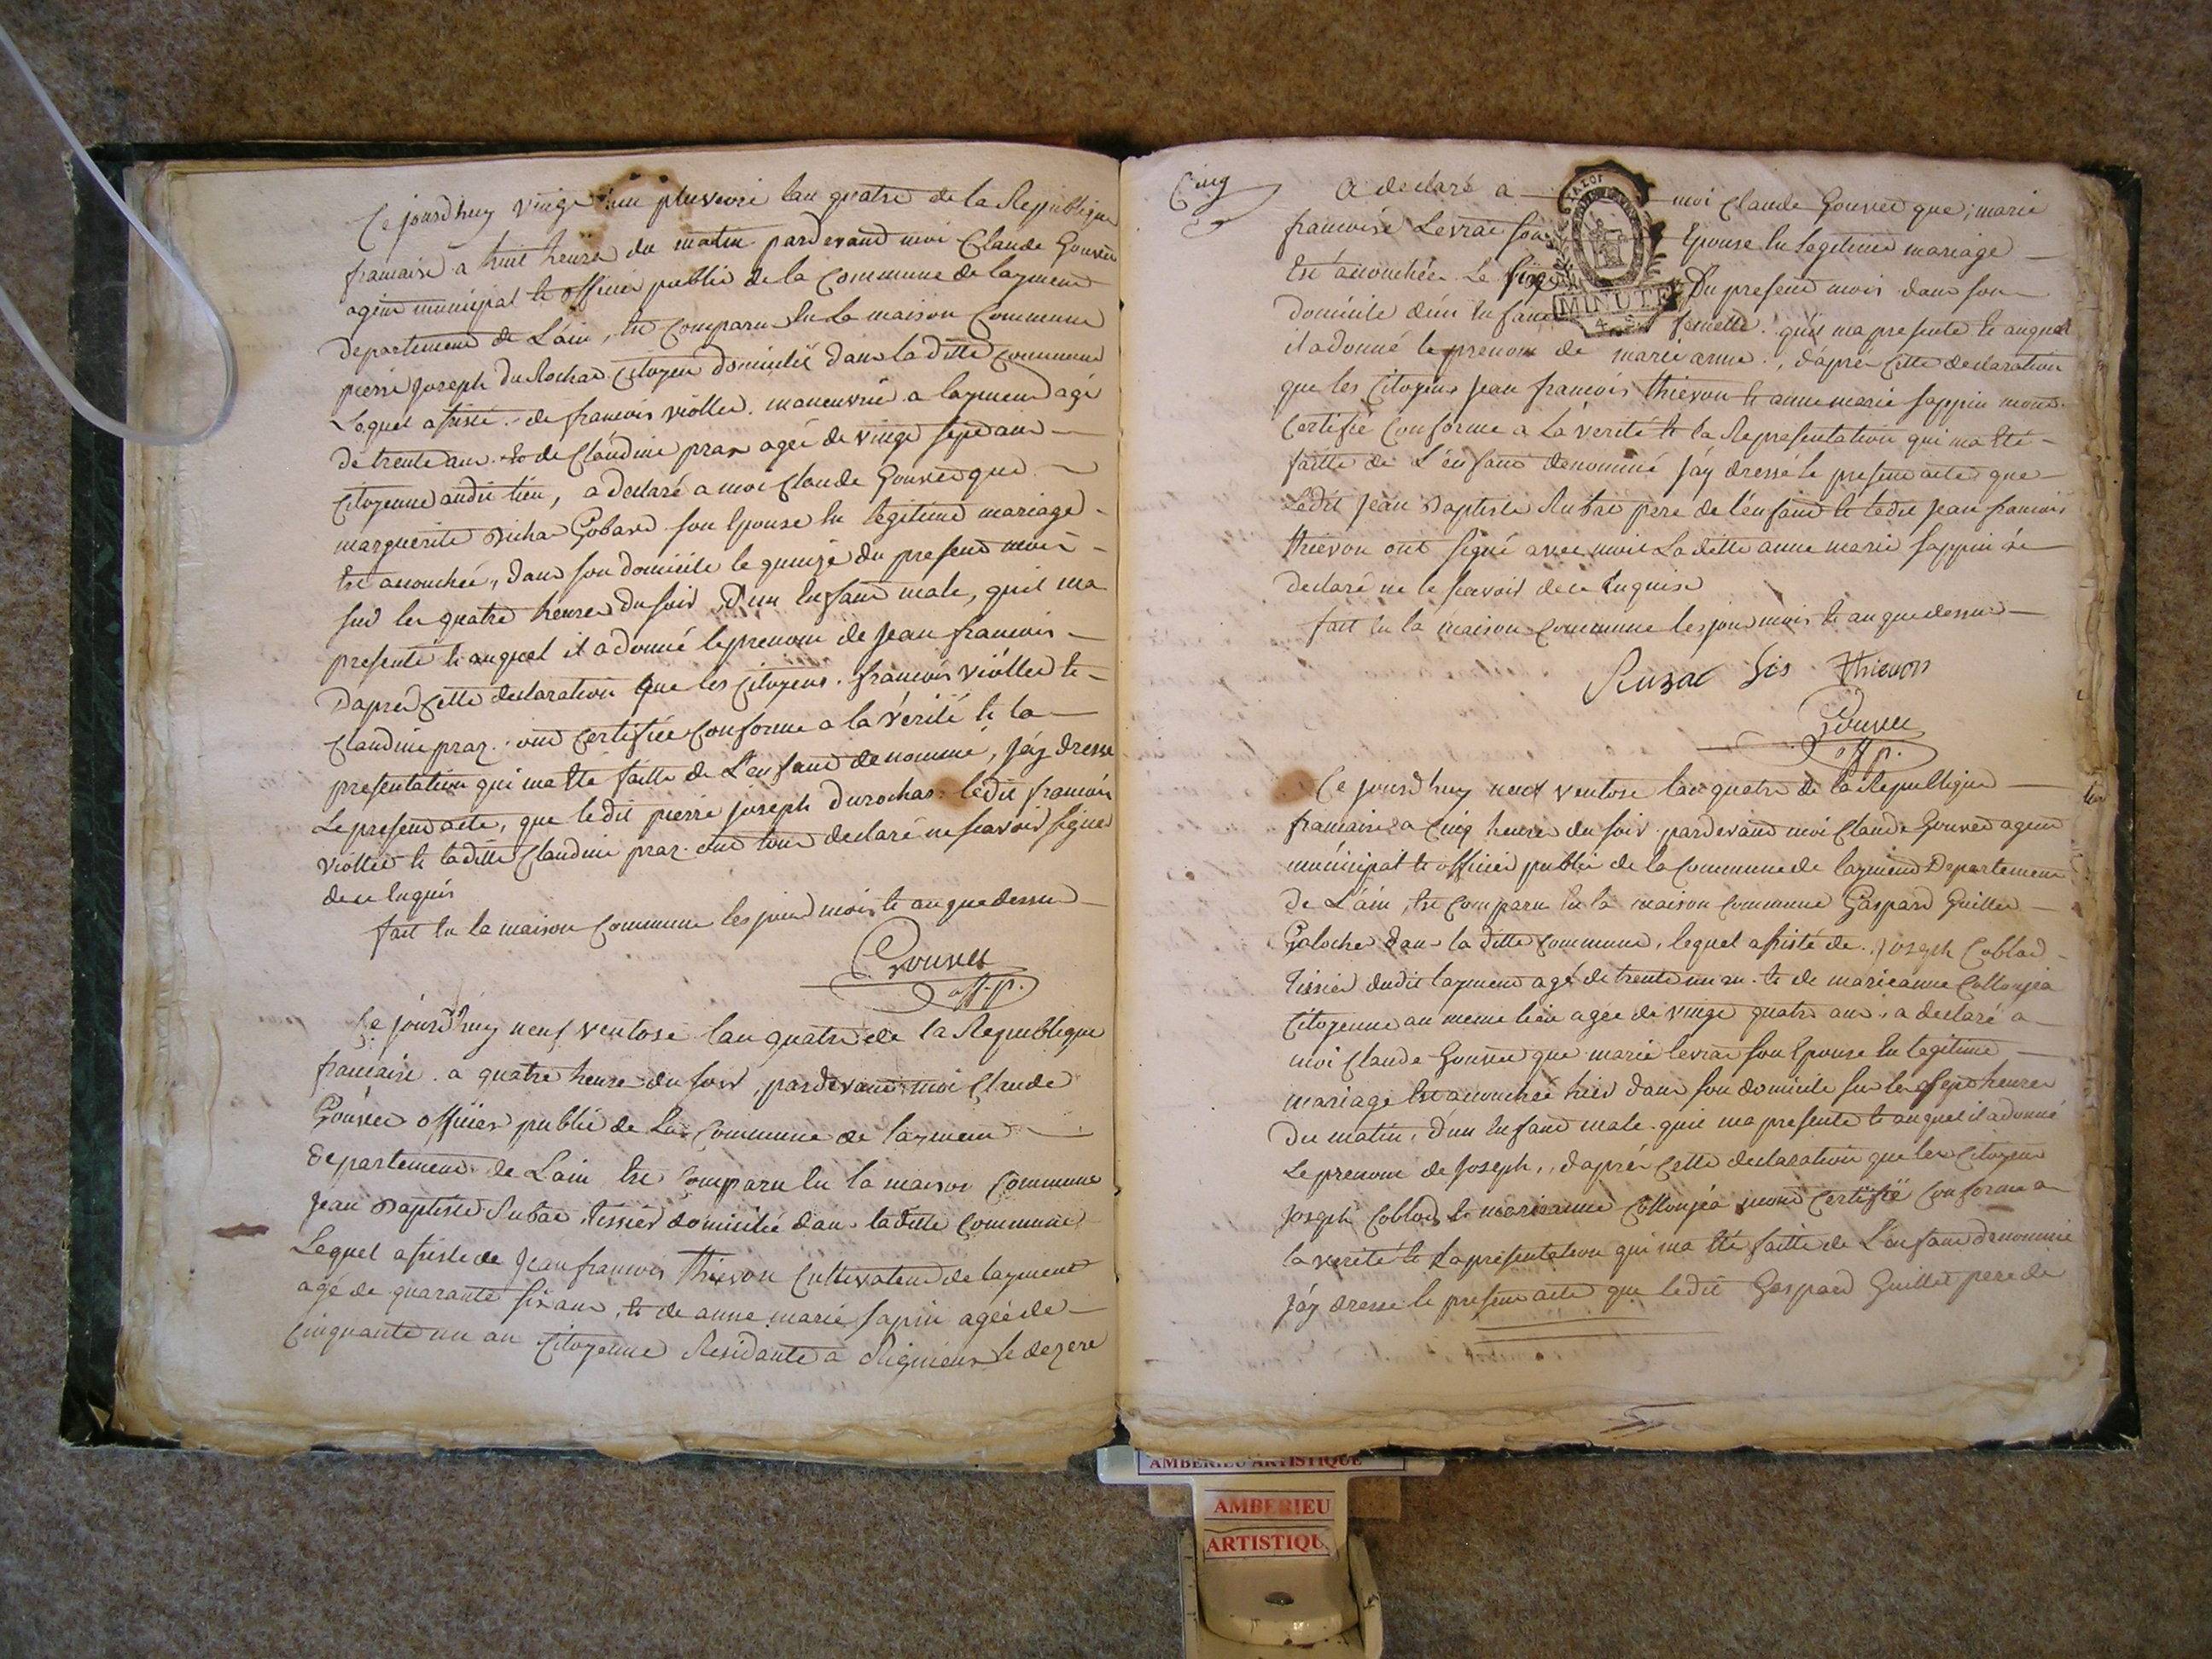 Ce jourd'huy vingt un pluviose l'an quatre de la Republique
francaise a huit heures du matin pardevand moi Claude Gouvet
agent municipal et officier public de la Commune de laymend
departement de L'ain, est comparu En la maison Commune
pierre Joseph Durochas Citoyen domicilié dans la ditte commune
Lequel assisté de francois viollet manouvrié a laymend agé
de trente ans et de Claudine praz agée de vingt sept ans
Citoyenne audit lieu, a declaré a moi Claude Gouvet que
marguerite Gobard son Epouse En legitime mariage
Est accouchée, dans son domicile le quinze du present mois
sur les quatre heures du soir d'un Enfand male, quil ma
presenté et auquel il a donné le prenom de Jean francois
Daprés cette declaration que les Citoyens francois viollet et
Claudine praz ond certifiée conforme a la vérité et la
presentation qui ma Eté faitte de L'enfand denommé, J'ay dressé
Le present acte, que ledit pierre joseph durochas ledit francois
viollet et laditte Claudine praz ond tous declaré ne scavoir signer
de ce Enquis
fait En la maison Commune les jour mois et an que dessus
Gouvet
off. p.
Ce jourd'huy neuf ventose lan quatre de la Republique
francaise a quatre heures du soir, pardevand moi Claude
Gouvet officier public de La Commune de laymend
departement de Lain Est Comparu En la maison Commune
Jean Baptiste Rubat tissier domicilié dans laditte Commune
Lequel assisté de Jean francois Thievon Cultivateur de laymend
agé de quarante six ans, et de anne marie sapin agée de
Cinquante un an Citoyenne Residante a Rignieux le dezere
Cinq
A declaré a moi Claude Gouvet que, marie
francoise Levrat son Epouse En Legitime mariage
Est accouchée Le Du present mois dans son
domicile d'un Enfand femelle quil ma presenté et auquel
il a donné le prenom de marie anne, d'aprés cette declaration
que les Citoyens Jean francois thievon et anne marie sappin mond
Certifié Conforme a La vérité et la Representation qui ma Eté
faitte de L'enfand denommé J'ay dressé le present acte que
Ledit Jean Baptiste Rubat pere de l'enfand et ledit Jean francois
thievon ont signé avec moi Laditte anne marie sappin a
declaré ne le scavoir de ce Enquise
fait En la maison commune les jour mois et an que dessus
Ruzac fis Thievon
Gouvet
off. p.
Ce jourd'huy neuf ventose l'an quatre de la Republique
francaise a Cinq heures du soir pardevand moi Claude Gouvet agend
municipal et officier public de la Commune de laymend Departement
de L'ain, Est Comparu En la maison commune Gaspard Guillet
Galoche dans la ditte commune, lequel assisté de Joseph Coblod
tissier dudit laymend agé de trente un an et de marieanne Collonjea
Citoyenne au meme lieu agée de vingt quatre ans, a declaré a
moi Claude Gouvet que marie levrat son Epouse En legitime
mariage Est accouchée hier dans son domicile sur les sept heures
du matin, d'un Enfand male quil ma presenté et auquel il a donné
Le prenom de Joseph, daprés cette declaration que les Citoyens
Joseph Coblod et marieanne Collonjea mond certifié conforme a
la verité et La presentation qui ma Eté faitte de L'enfand denommé
J'ay dressé le present acte que ledit Gaspard Guillet pere de
5
MINUTE
AMBERIEU ARTISTIQUE
AMBERIEU
ARTISTIQU